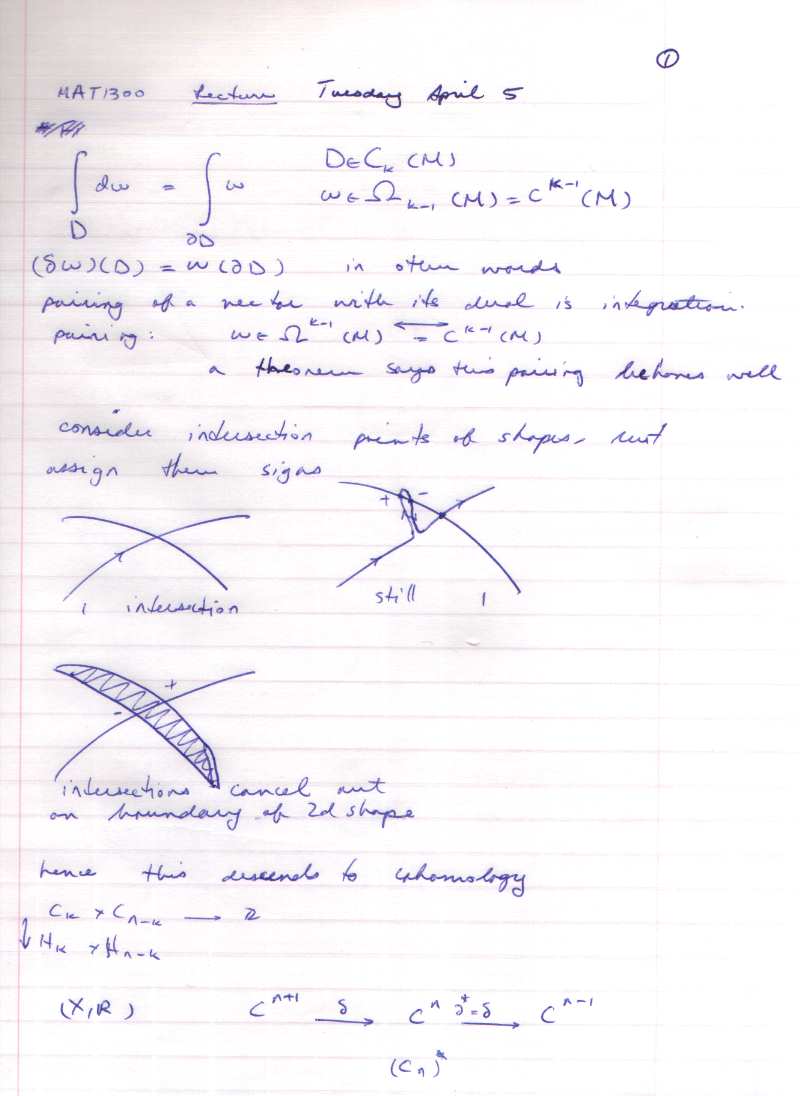 ①
MAT1300 Lecture Tuesday April 5
∫_D dω = ∫_∂D ω D∈C_k (M)
ω∈Ω_k-1 (M) = C^k-1 (M)
(δω)(D) = ω(∂D) in other words
pairing of a vector with its dual is integration.
pairing: ω∈Ω^k-1 (M) ⟷ = C^k-1 (M)
a theorem says this pairing behaves well
consider intersection points of shapes, but
assign them signs
+ -
1 intersection still 1
+
-
intersections cancel out
on boundary of 2d shape
hence this descends to cohomology
C_k × C_n-k → Z
↓ H_k × H_n-k
(X, R) C^n+1 →^δ C^n →^∂*=δ C^n-1
(C_n)*